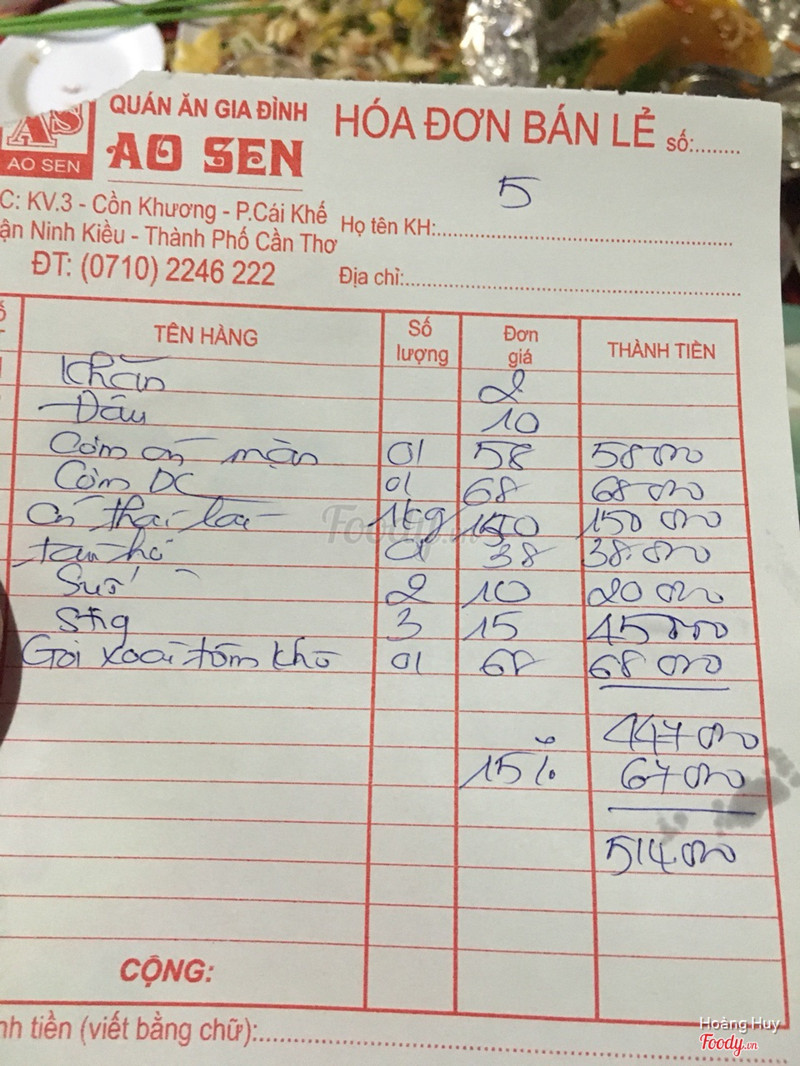 QUÁN ĂN GIA ĐÌNH
AO SEN
AS
AO SEN
HÓA ĐƠN BÁN LẺ số:........
C: KV.3 - Cồn Khương - P.Cái Khế
ận Ninh Kiều - Thành Phố Cần Thơ
ĐT: (0710) 2246 222
5
Họ tên KH:
Địa chỉ:
TÊN HÀNG Số lượng Đơn giá THÀNH TIỀN
Khăn 2
Đậu 10
Cơm cá mặn 01 58 58000
Cơm DC 01 68 68000
1kg 150 150000
01 38 38000
Suối 2 10 20000
Stig 3 15 45000
Gỏi xoài tôm khô 01 68 68000
447000
15% 67000
514000
CỘNG:
nh tiền (viết bằng chữ):
Foody.vn
Hoàng Huy
Foody.vn